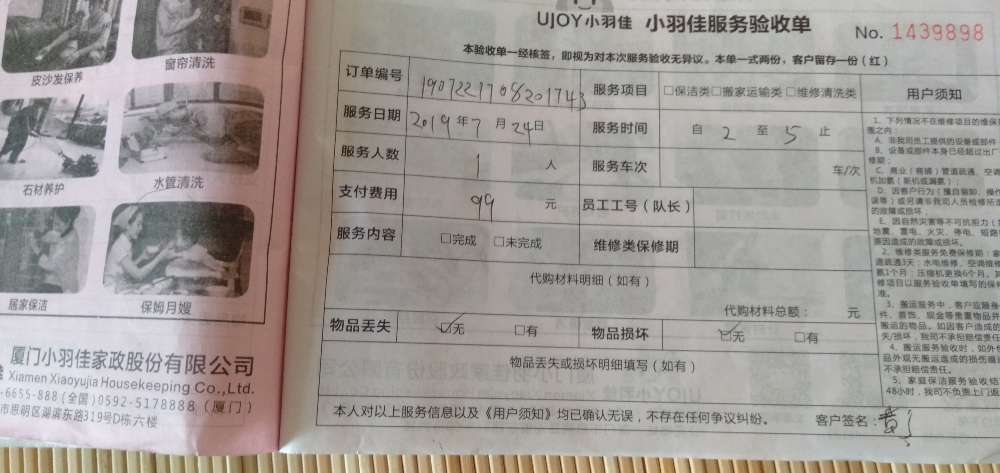 皮沙发保养
窗帘清洗
石材养护
水管清洗
居家保洁
保姆月嫂
厦门小羽佳家政股份有限公司
Xiamen Xiaoyujia Housekeeping Co.,Ltd.
-6655-888 (全国) 0592-5178888 (厦门)
市思明区湖滨东路319号D栋六楼
UJOY小羽佳 小羽佳服务验收单
No. 1439898
本验收单一经核签，即视为对本次服务验收无异议。本单一式两份，客户留存一份（红）
订单编号 1907221708201743 服务项目 □保洁类□搬家运输类□维修清洗类
服务日期 2019年7月24日 服务时间 自 2 至 5 止
服务人数 1 人 服务车次 车/次
支付费用 99 元 员工工号（队长）
服务内容 □完成 □未完成 维修类保修期
代购材料明细（如有）
代购材料总额： 元
物品丢失 ☑无 □有 物品损坏 ☑无 □有
物品丢失或损坏明细填写（如有）
本人对以上服务信息以及《用户须知》均已确认无误，不存在任何争议纠纷。 客户签名：黄
用户须知
1、下列情况不在维修项目的维保
围之内：
A、非我司员工提供的设备或部件
B、设备或部件本身已经超过出厂
修期；
C、商业（商铺）管道疏通、空调
机加氨（新机或漏氨）
D、因客户行为（擅自装卸、操作
误等）或何请非我司人员检修所造
的故障或损坏；
E、因自然灾害等不可抗拒力（
地震、雷电、火灾、停电、短路
原因造成的故障或损坏。
2、维修类服务免费保修期：
道疏通3天；水电维修、空调维修
氨1个月；压缩机更换6个月。
修项目以服务验收单填写的保修
准。
3、搬运服务中，客户应随身
件、首饰、现金等贵重物品并
搬运的物品。如因客户造成的
失/损坏，我司不承担责任。
4、搬运服务验收时，如外包
品外观无搬运造成的损伤痕
不承担赔偿责任。
5、家庭保洁服务验收结
48小时，我司不负责上门返